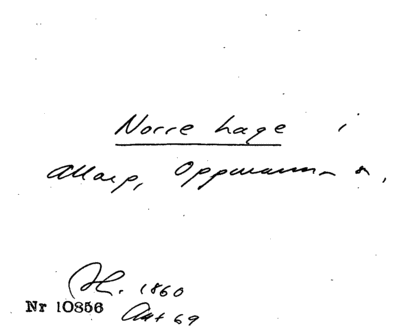 Norre hage i
Allarp, Oppmanna s.
H. 1860
Nr 10856
Akt 69